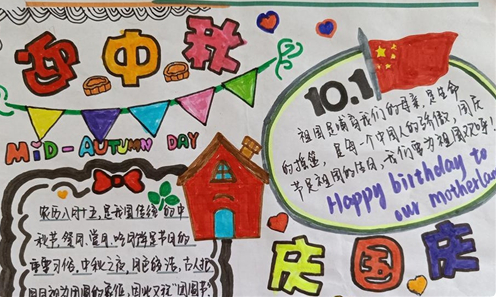 迎中秋
MID-AUTUMN DAY
农历八月十五,是我国传统的中
秋节。祭月、赏月、吃团饼是节日的
重要习俗,中秋之夜,月色皎洁,古人把
圆月视为团圆的象征,因此又称“团圆节
10.1
祖国是哺育我们的母亲,是生命
的摇篮,是每一个中国人的骄傲,国庆
节是祖国的生日,我们要为祖国欢呼!
Happy birthday to
our motherland
庆国庆